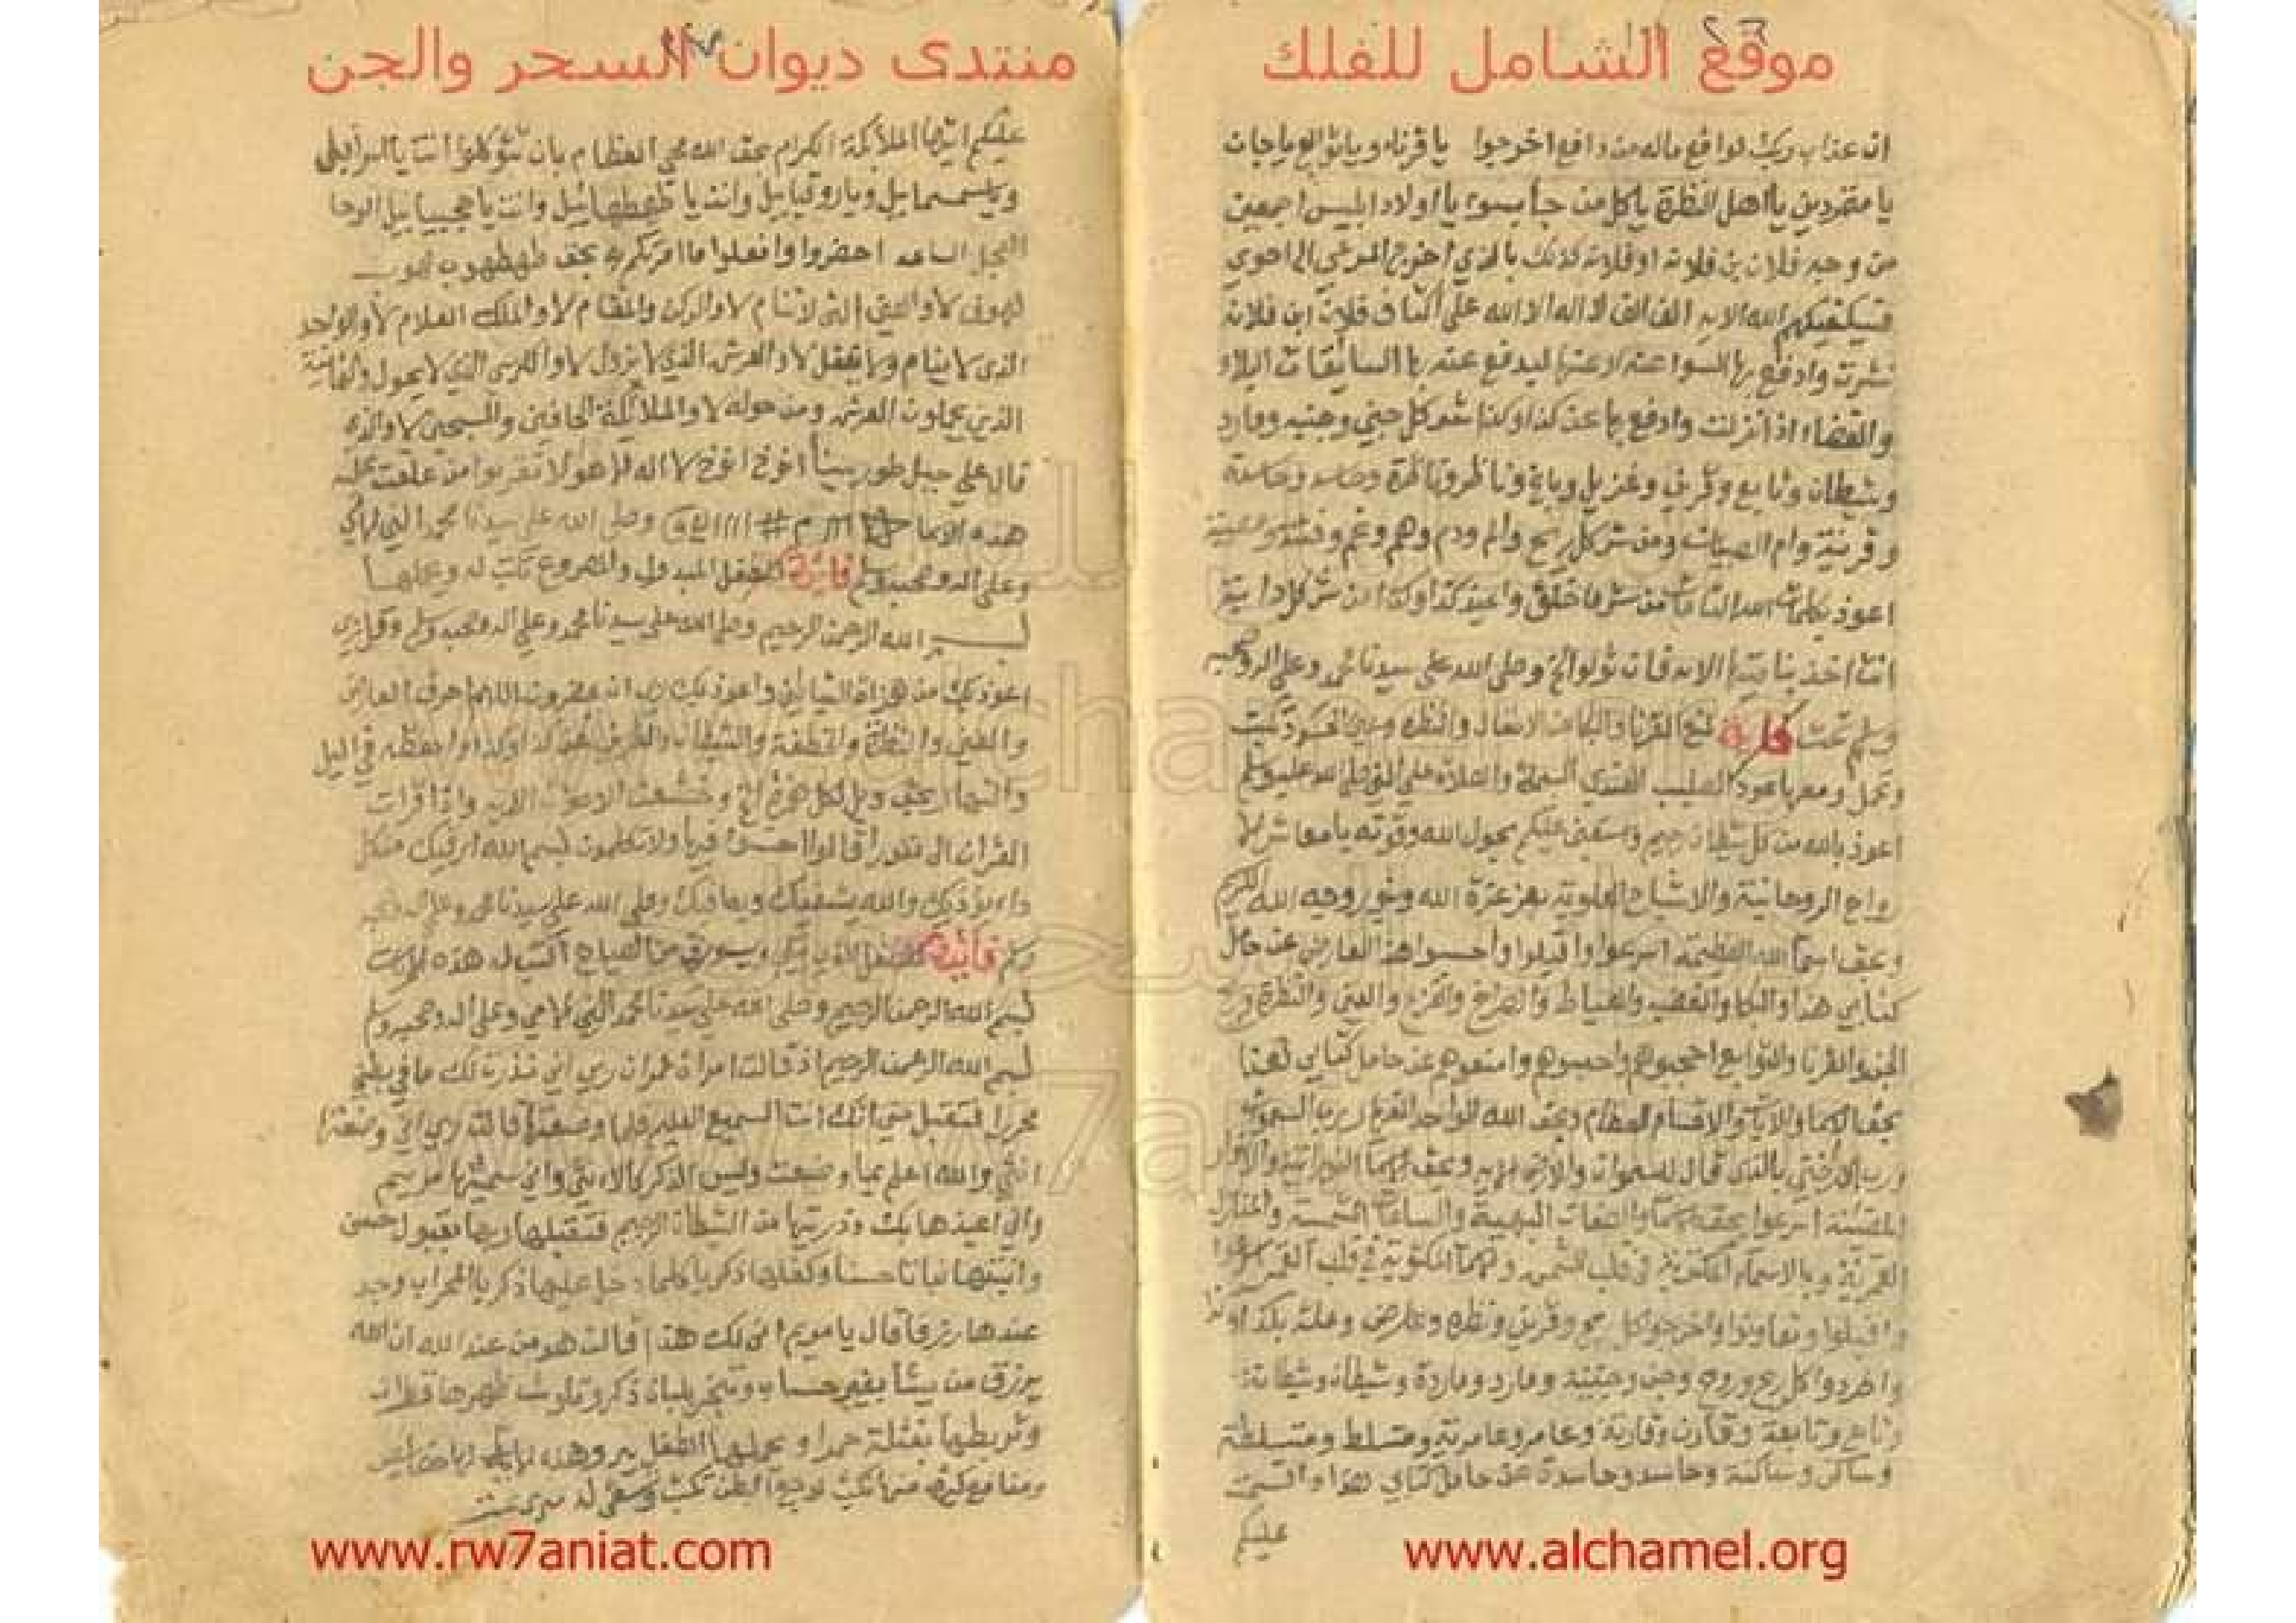 موقع الشامل للفلك
ان عذاب ربك لواقع ماله من دافع اخرجوا يا قرناء ويا توابع يا جان
يا متمردين يا اهل النظرة يا كل من جأ بسوء يا اولاد ابليس اجمعين
من وجه فلان بن فلانة او فلانة كذلك بالذي اخرج المرعى الى احوى
فسيكفيكهم الله الايه الف الف لا اله الا الله على اكتاف فلان ابن فلانة
نشرت وادفع بها السوا عنه او عنها ليدفع عنه بها السابقات البلاء
والقضاء اذا نزلت وادفع بها عن كذا وكذا شر كل جني وجنيه ومارد
وشيطان وتابع وقرين وغزيل وباغ وناظر وناظرة وحاسد وحاسدة
وقرينة وام الصبيان ومن شر كل ريح والم ودم وهم وغم
اعوذ بكلمات الله التامات من شر ما خلق واعيذ كذا وكذا من شر كل دابة
انت اخذ بناصيتها الايه فان تولوا الخ وصلى الله على سيدنا محمد وعلى اله وصحبه
وسلم تمت فايدة لمنع القرنا والبكا من الاطفال والنظره وعين الحسود تكتب
وتحمل ومعها عود الصليب الهندي البسملة والصلاة على النبي صلى الله عليه وسلم
اعوذ بالله من كل شيطان رجيم واستعين عليكم بحول الله وقوته يا معاشر الا
رواح الروحانية والاشباح العلويه بعز عزة الله وبنور وجه الله الكريم
وبحق اسماء الله العظيمه اسرعوا واقبلوا واحبسوا هذا العارض عن حامل
كتابي هذا والبكا والغضب والعياط والصراخ والفزع والعين والنظرة
الجن والقرنا والتوابع احجبوهم واحبسوهم وامنعوهم عن حامل كتابي هذا
بحق الاسما والايات والاقسام العظام وبحق الله الواحد القهار رب السموات
ورب الارضين بالذي قال للسموات والارض الايه وبحق الاسما النورانية والانوار
اسرعوا بحق والصفات البهية والساعات الشمسيه والمنازل
القمرية وبالاسماء المكتوبة في قلب الشمس والاسما المكتوبة في قلب القمر اسرعوا
واقبلوا وتعاونوا واخرجوا كل ريح وقرين ونظره وعارض وعلة بكذا وكذا
واطردوا كل ريح وروح وجن وجنية ومارد وماردة وشيطان وشيطانة
وتابع وتابعة وقارن وقارنة وعامر وعامرية ومتسلط ومتسلطة
وساكن وساكنة وحاسد وحاسدة عن حامل كتابي هذا واقسمت
عليكم
www.alchamel.org
منتدى ديوان السحر والجن
عليكم ايتها الملائكة الكرام بحق الله محي العظام بان تتوكلوا انت يا
ويا سمسمايل ويا روقيايل وانت يا طهطهائيل وانت يا الوحا
العجل الساعه احضروا وافعلوا ما امرتكم به بحق طهطهوب لهوب
لهوف لا والعين التي لا تنام لا والركن والمقام لا والملك العلام لا والواحد
الذي لا ينام ولا يغفل لا والعرش الذي لا يزول لا والكرسي الذي لا يحول والثمانية
الذين يحملون العرش ومن حوله لا والملائكة الحافين والمسبحين لا والذي
قال على جبل طور سينأ اخرج اخرج لا اله الا هو لا تقربوا من علقت عليه
هذه الاسما وصلى الله على سيدنا محمد النبي الامي
وعلى اله وصحبه وسلم فايدة للطفل المبدول والمصروع تكتب له ويحملها
بسم الله الرحمن الرحيم وصلى الله على سيدنا محمد وعلى اله وصحبه وسلم وقل رب
اعوذ بك من همزات الشياطين واعوذ بك رب ان يحضرون اللهم اصرف العارض
والعين والنظرة والخطفة والشيطان والقرين عن كذا وكذا واحفظه في الليل
والنهار بحق ويل لكل همزة الخ وخشعت الاصوات الايه واذا قرات
القران الى نفورا قالوا اخسؤا فيها ولا تكلمون بسم الله ارقيك من كل
داء يؤذيك والله يشفيك ويعافيك وصلى الله على سيدنا محمد وعلى اله وصحبه
وسلم فايدة للطفل الذي يبكي ويسورق من الصياح اكتب له هذه الايات
بسم الله الرحمن الرحيم وصلى الله على سيدنا محمد النبي الامي وعلى اله وصحبه وسلم
بسم الله الرحمن الرحيم اذ قالت امراة عمران رب اني نذرت لك ما في بطني
محررا فتقبل مني انك انت السميع العليم فلما وضعتها قالت رب اني وضعتها
انثى والله اعلم بما وضعت وليس الذكر كالانثى واني سميتها مريم
واني اعيذها بك وذريتها من الشيطان الرجيم فتقبلها ربها بقبول حسن
وانبتها نباتا حسنا وكفلها زكريا كلما دخل عليها زكريا المحراب وجد
عندها رزقا قال يا مريم انى لك هذا قالت هو من عند الله ان الله
يرزق من يشأ بغير حساب وتبخر بلبان ذكر وتلوث ظهرها قطران
وتربطها بفتلة حمرا ويحملها الطفل يبر وهذه لها خصايص
ومنافع كثيره منها تكتب لوجع البطن تكتب وتسقى له
www.rw7aniat.com